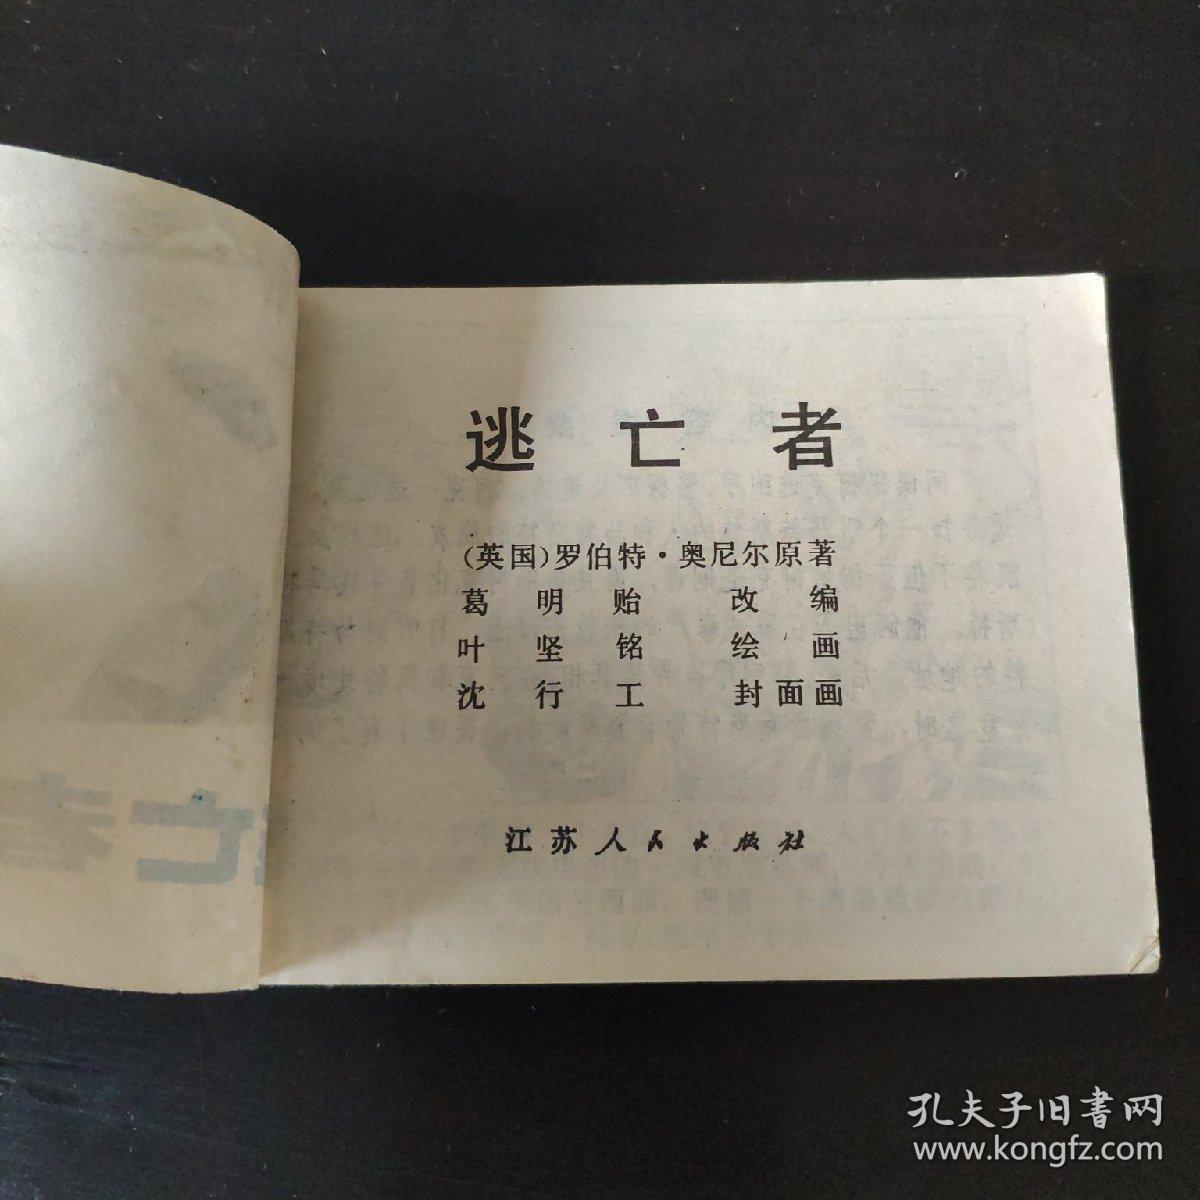 逃亡者
(英国)罗伯特·奥尼尔原著
葛明贻 改编
叶坚铭 绘画
沈行工 封面画
江苏人民出版社
亡者
孔夫子旧书网
www.kongfz.com